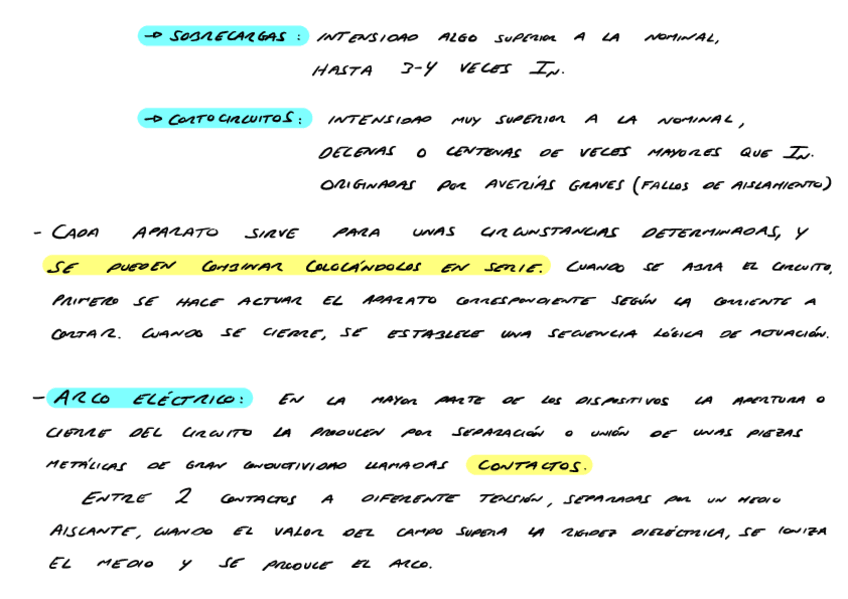 → SOBRECARGAS: INTENSIDAD ALGO SUPERIOR A LA NOMINAL,
HASTA 3-4 VECES IN.
→ CORTOCIRCUITOS: INTENSIDAD MUY SUPERIOR A LA NOMINAL,
DECENAS O CENTENAS DE VECES MAYORES QUE IN.
ORIGINADAS POR AVERÍAS GRAVES (FALLOS DE AISLAMIENTO)
- CADA APARATO SIRVE PARA UNAS CIRCUNSTANCIAS DETERMINADAS, Y
SE PUEDEN COMBINAR COLOCÁNDOLOS EN SERIE. CUANDO SE ABRA EL CIRCUITO,
PRIMERO SE HACE ACTUAR EL APARATO CORRESPONDIENTE SEGÚN LA CORRIENTE A
CORTAR. CUANDO SE CIERRE, SE ESTABLECE UNA SECUENCIA LÓGICA DE ACTUACIÓN.
- ARCO ELÉCTRICO: EN LA MAYOR PARTE DE LOS DISPOSITIVOS LA APERTURA O
CIERRE DEL CIRCUITO LA PRODUCEN POR SEPARACIÓN O UNIÓN DE UNAS PIEZAS
METÁLICAS DE GRAN CONDUCTIVIDAD LLAMADAS CONTACTOS.
ENTRE 2 CONTACTOS A DIFERENTE TENSIÓN, SEPARADAS POR UN MEDIO
AISLANTE, CUANDO EL VALOR DEL CAMPO SUPERA LA RIGIDEZ DIELÉCTRICA, SE IONIZA
EL MEDIO Y SE PRODUCE EL ARCO.